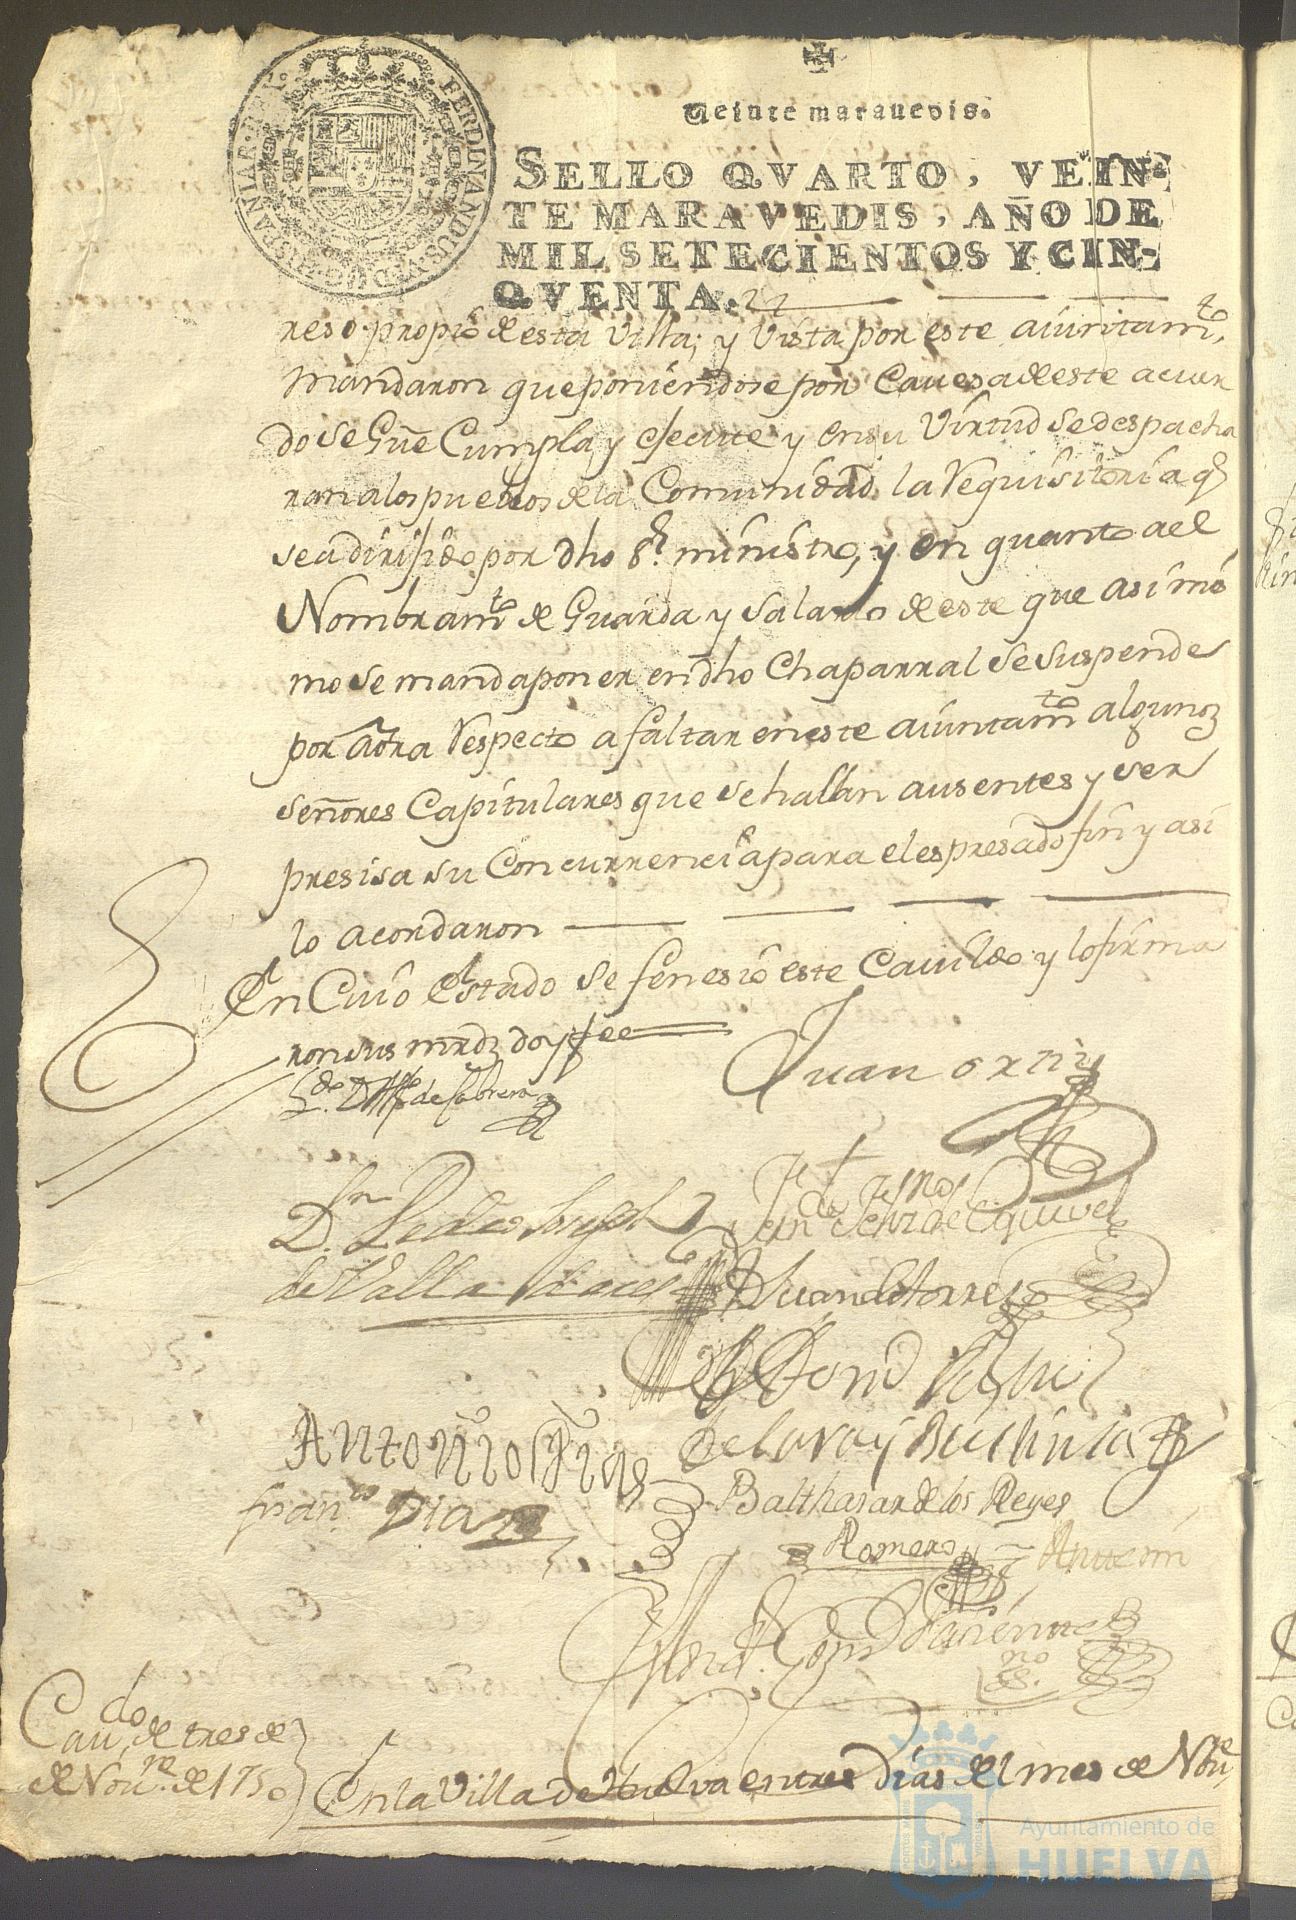 FERDINANDUS VI D G HISPANIAR REX
Veinte marauedis.
SELLO QVARTO, VEIN-
TE MARAVEDIS, AÑO DE
MIL SETECIENTOS Y CIN-
QVENTA.
reso propio de esta Villa; y Vista por este aiuntam.to
Mandaron que poniendose por Cauesa de este acuer
do se Gue Cumpla y ejecute y en su Virtud se despacha
ran a los pueblos de la Comunidad la Requisitoria q.
sea dirijido por dho S.r ministro, y en quanto a el
Nombram.to de Guarda y Salario de este que asi mis
mo se manda poner en dho Chaparral se suspende
por aora Respecto a faltar en este aiuntam.to algunoz
señores Capitulares que se hallan ausentes y ser
presisa su Concurrencia para el espresado fin y asi
lo acordaron
En Cuio Estado se fenesio este Cauildo y lo firma
ron sus mrdz doy fee
L.do D. de Cabrera
Juan ortiz
D.n Pedro Joseph
de Valla
de Esquivel
Juan de torres
Antonio Dias
Fran.co Diaz
Balthasar de los Reyes
Romero
Ante mi
no
es.
Cau.do de tres de
de Nou.re de 1750
En la Villa de Huelva en tres Dias del mes de Nou.re
Ayuntamiento de
HUELVA